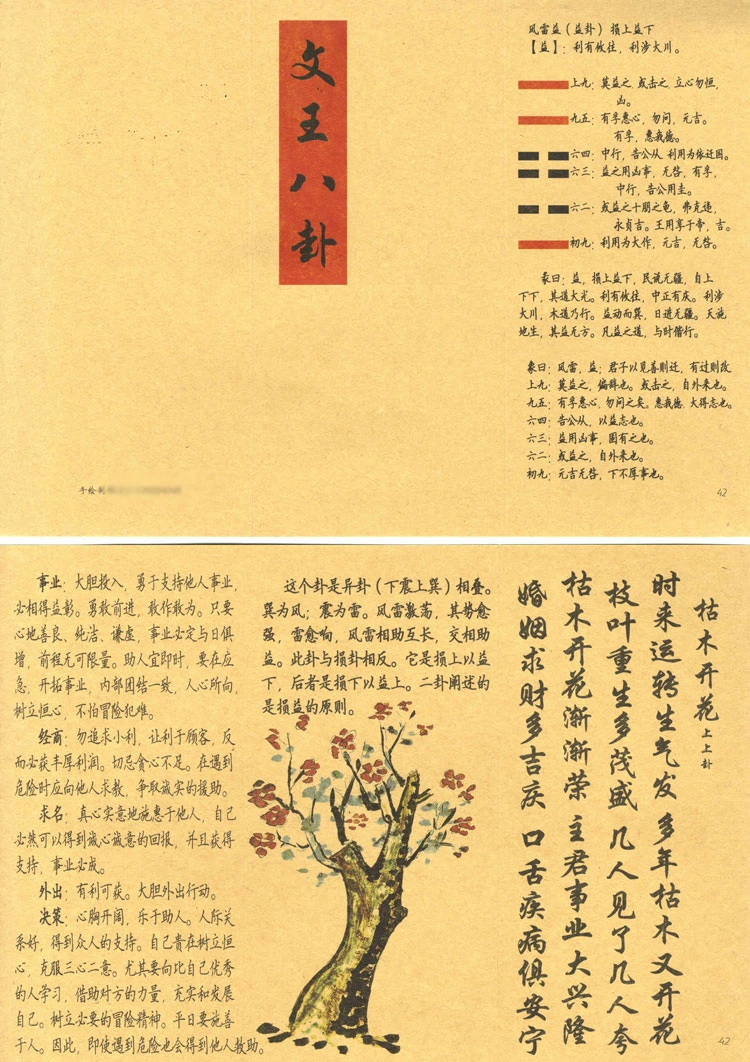 文王八卦
风雷益（益卦）损上益下
【益】：利有攸往，利涉大川。
上九：莫益之，或击之，立心勿恒，
凶。
九五：有孚惠心，勿问，元吉。
有孚，惠我德。
六四：中行，告公从，利用为依迁国。
六三：益之用凶事，无咎，有孚，
中行，告公用圭。
六二：或益之十朋之龟，弗克违，
永贞吉。王用享于帝，吉。
初九：利用为大作，元吉，无咎。
彖曰：益，损上益下，民说无疆，自上
下下，其道大光。利有攸往，中正有庆。利涉
大川，木道乃行。益动而巽，日进无疆。天施
地生，其益无方。凡益之道，与时偕行。
象曰：风雷，益；君子以见善则迁，有过则改
上九：莫益之，偏辞也。或击之，自外来也。
九五：有孚惠心，勿问之矣。惠我德，大得志也。
六四：告公从，以益志也。
六三：益用凶事，固有之也。
六二：或益之，自外来也。
初九：元吉无咎，下不厚事也。
手绘制
42
枯木开花上上卦
时来运转生气发 多年枯木又开花
枝叶重生多茂盛 几人见了几人夸
枯木开花渐渐荣 主君事业大兴隆
婚姻求财多吉庆 口舌疾病俱安宁
这个卦是异卦（下震上巽）相叠。
巽为风；震为雷。风雷激荡，其势愈
强，雷愈响，风雷相助互长，交相助
益。此卦与损卦相反。它是损上以益
下，后者是损下以益上。二卦阐述的
是损益的原则。
事业：大胆投入，勇于支持他人事业，
必相得益彰。勇敢前进，敢作敢为。只要
心地善良、纯洁、谦虚，事业必定与日俱
增，前程无可限量。助人宜即时，要在应
急，开拓事业，内部团结一致，人心所向，
树立恒心，不怕冒险犯难。
经商：勿追求小利，让利于顾客，反
而必获丰厚利润。切忌贪心不足。在遇到
危险时应向他人求教，争取诚实的援助。
求名：真心实意地施惠于他人，自己
必然可以得到诚心诚意的回报，并且获得
支持，事业必成。
外出：有利可获。大胆外出行动。
决策：心胸开阔，乐于助人。人际关
系好，得到众人的支持。自己贵在树立恒
心，克服三心二意。尤其要向比自己优秀
的人学习，借助对方的力量，充实和发展
自己。树立必要的冒险精神。平日要施善
于人。因此，即使遇到危险也会得到他人救助。
42